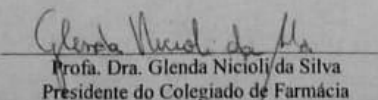 Glenda Nicioli da Silva
Profa. Dra. Glenda Nicioli da Silva
Presidente do Colegiado de Farmácia